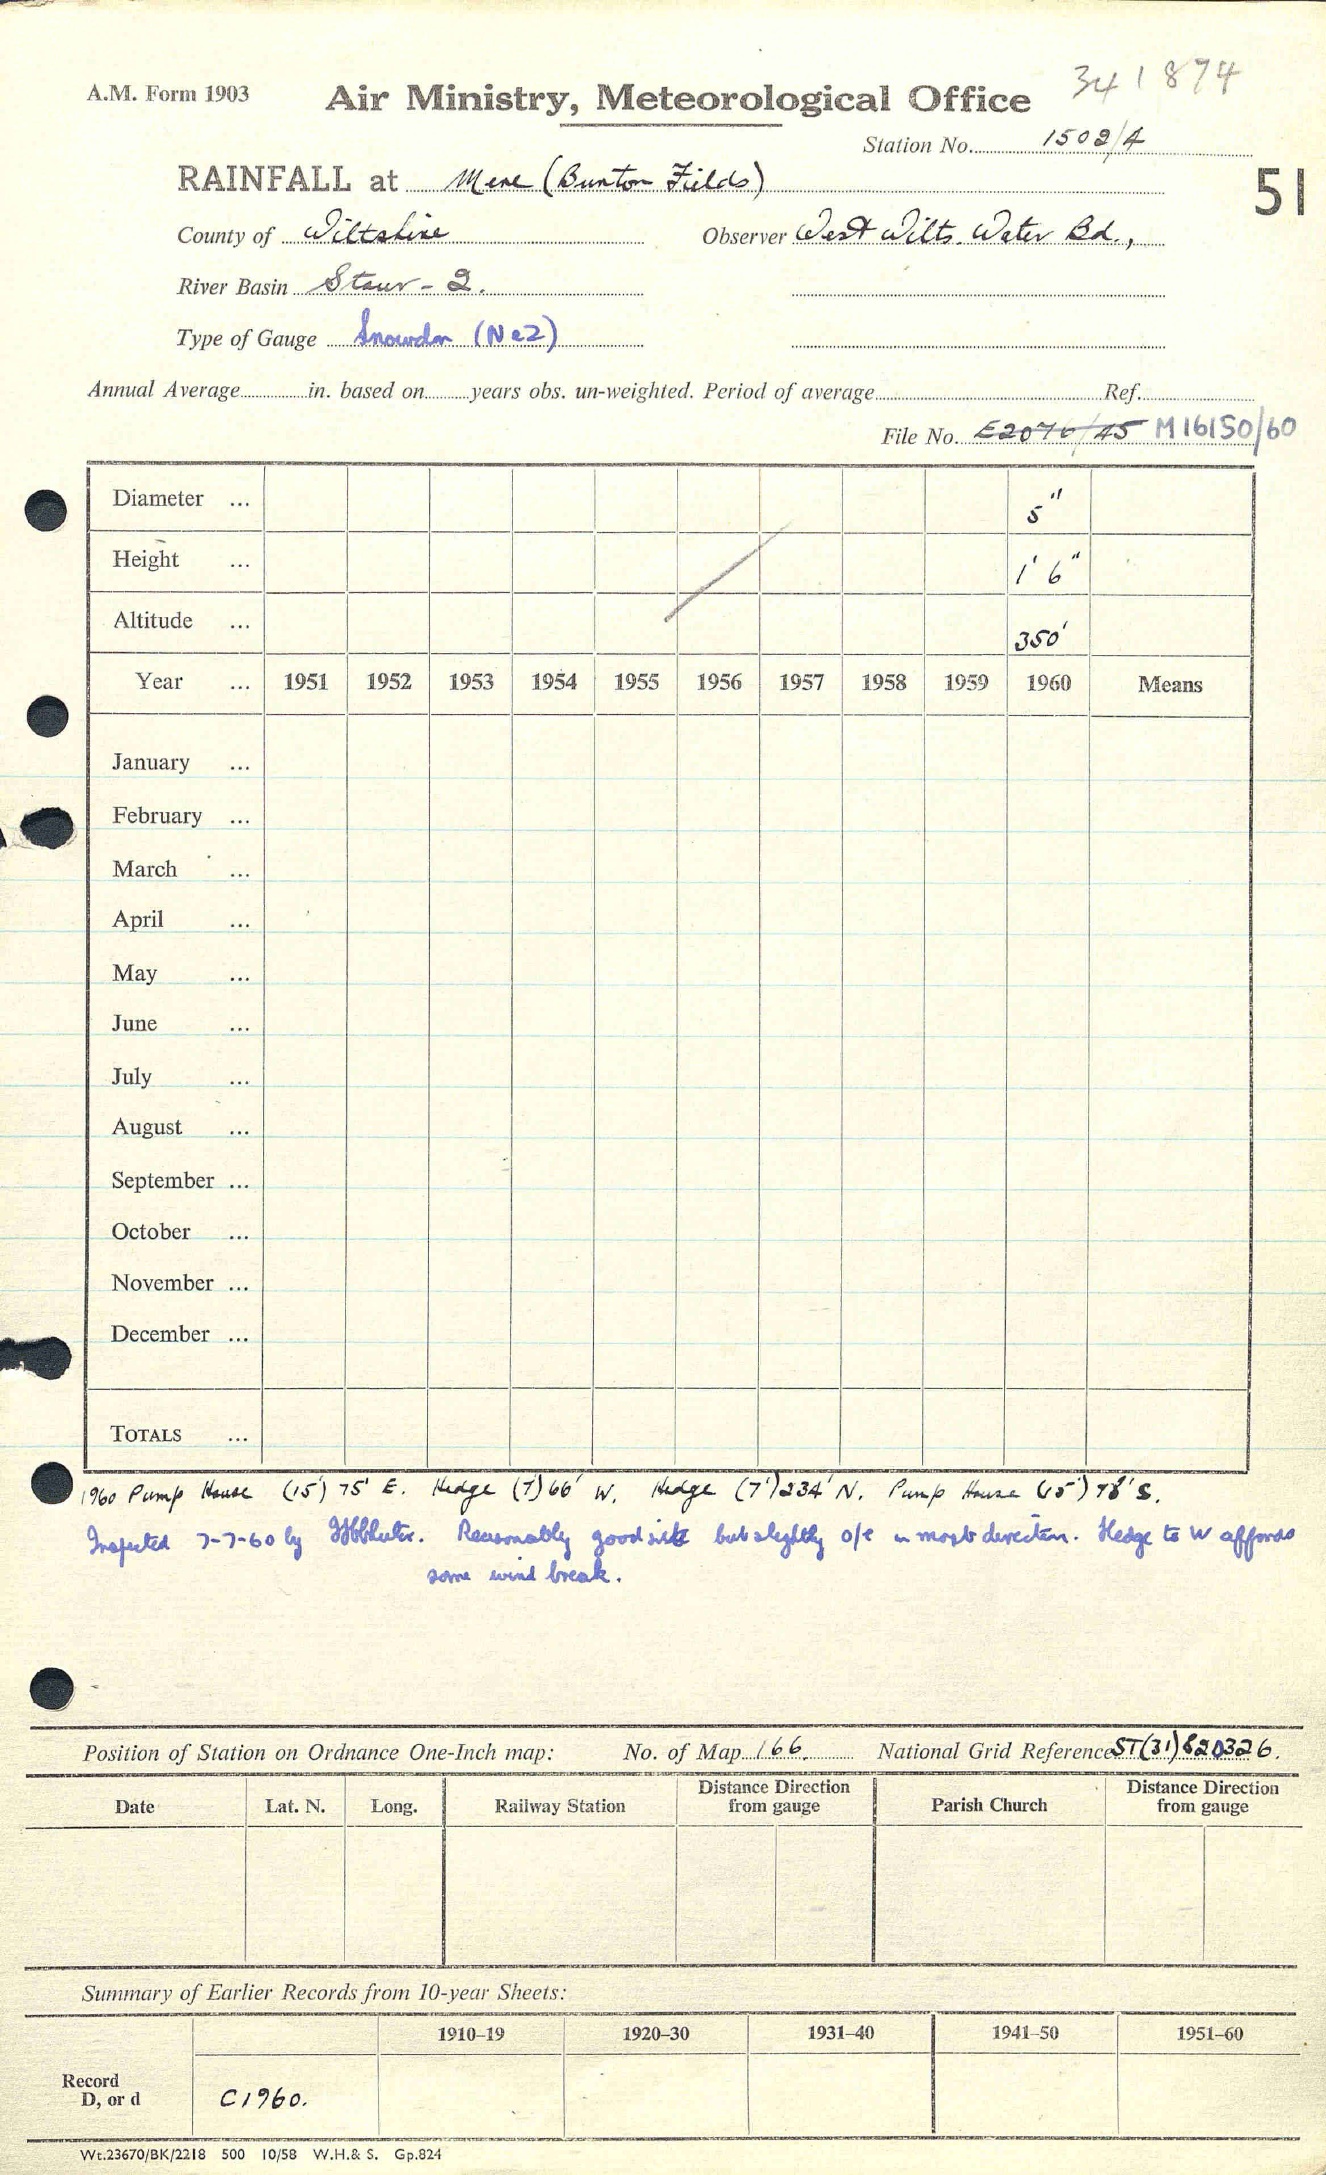 A.M. Form 1903 Air Ministry, Meteorological Office 341874
Station No. 1502/A
RAINFALL at Mere (Burton Fields) 51
County of Wiltshire Observer West Wilts. Water Bd.,
River Basin Stour - 2.
Type of Gauge Snowdon (Ne2)
Annual Average in. based on years obs. un-weighted. Period of average Ref.
File No. E2076/45 M16150/60
Diameter ... 5"
Height ... 1' 6"
Altitude ... 350'
Year ... 1951 1952 1953 1954 1955 1956 1957 1958 1959 1960 Means
January ...
February ...
March ...
April ...
May ...
June ...
July ...
August ...
September ...
October ...
November ...
December ...
TOTALS ...
1960 Pump House (15') 75' E. Hedge (7') 66' W. Hedge (7') 234' N. Pump House (15') 78' S.
Inspected 7-7-60 by Reasonably good site but slightly o/e in most direction. Hedge to W affords
some wind break.
Position of Station on Ordnance One-Inch map: No. of Map 166. National Grid Reference ST(31)820326.
Date Lat. N. Long. Railway Station Distance Direction from gauge Parish Church Distance Direction from gauge
Summary of Earlier Records from 10-year Sheets:
1910–19 1920–30 1931–40 1941–50 1951–60
Record
D, or d C1960.
Wt.23670/BK/2218 500 10/58 W.H.& S. Gp.824